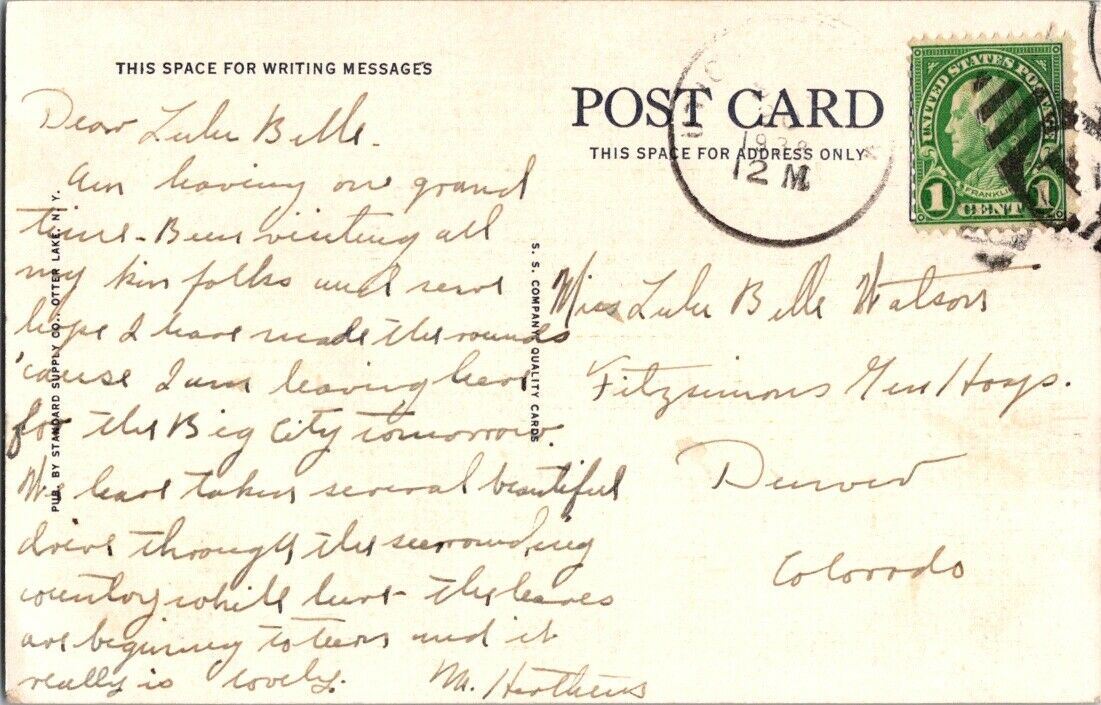 THIS SPACE FOR WRITING MESSAGES
Dear Lulu Belle.
Am having one grand
time - Been visiting all
my kin folks and sure
hope I have made the rounds
'cause I am leaving here
for the Big City tomorrow.
We have taken several beautiful
drive through the surrounding
country while here - the leaves
are beginning to turn and it
really is lovely.
M.
PUB. BY STANDARD SUPPLY CO., OTTER LAKE, N. Y.
S. S. COMPANY QUALITY CARDS
POST CARD
THIS SPACE FOR ADDRESS ONLY
12 M
UNITED STATES POSTAGE
FRANKLIN
1 CENT 1
Miss Lulu Belle Watson
Fitzsimons Gen Hosp.
Denver
Colorado